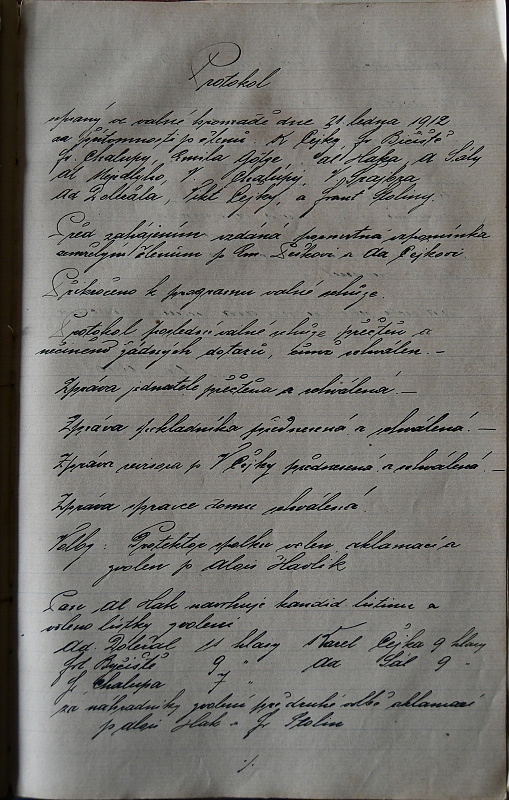 Protokol
psaný o valné hromadě dne 21 ledna 1912
za přítomnosti p. členů. K Čejky, Fr. Byčiště
Fr. Chalupy, Emila Götze, Al Haka, A Sály
Al V. Chalupy, V.
Ad Doležala, Vikt Čejky, a Frant Stoliny.
Před zahájením vzdaná posmrtná vzpomínka
zemřelým členům p Em. a Ad Čejkovi.
Přikročeno k programu valné schůze.
Protokol poslední valné schůze přečten a
nečiněno žádných dotazů, schválen. —
Zpráva jednatele přečtena a schválená. —
Zpráva pokladníka přednesená a schválená. —
Zpráva revisora p V Čejky přednesená a schválená. —
Zpráva správce domu schválená.
Volby: Protektor spolku volen aklamací a
zvolen p Alois Havlík
Pan Al Hak navrhuje kandid listinu a
voleno lístky zvoleni
Ad. Doležal 11 hlasy Karel Čejka 9 hlasy
Byčiště 9 " Ad Sál 9 "
Fr. Chalupa 7 "
za náhradníky zvoleni při druhé volbě aklamací
p Alois Hak a Fr Stolin
./.